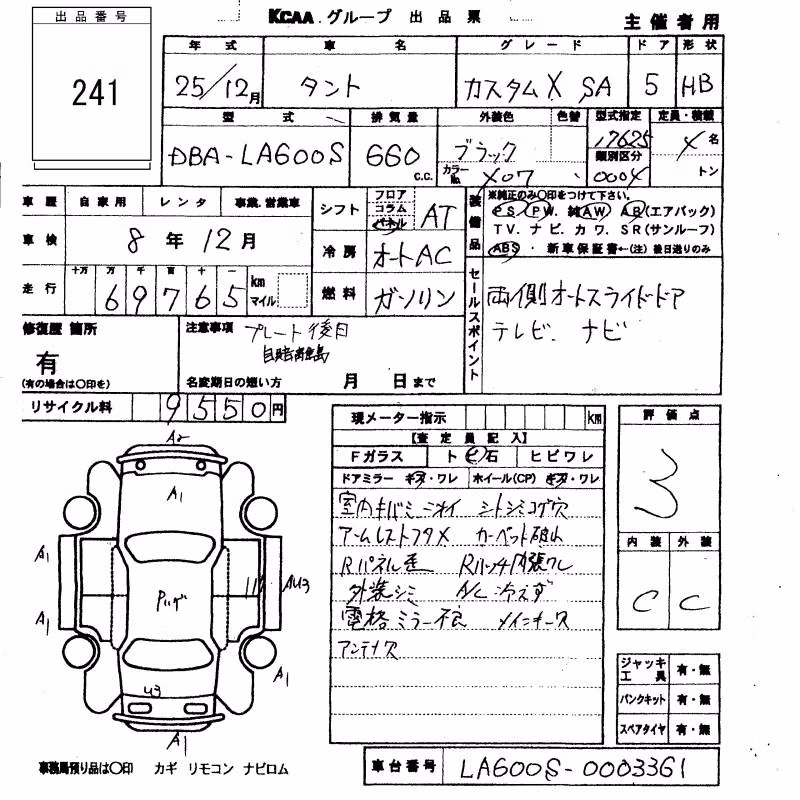 出品番号
241
KCAA.グループ 出品票
主催者用
年式 車名 グレード ドア 形状
25/12月 タント カスタムX SA 5 HB
型式 排気量 外装色 色替 型式指定 定員・積載
DBA-LA600S 660 c.c. ブラック カラーNo. X07 17625 類別区分 0004 4名 トン
車歴 自家用 レンタ 事業.営業車
車検 8年12月
走行 十万 万 千 百 十 一 69765 km マイル
シフト フロア コラム パネル AT
冷房 オートAC
燃料 ガソリン
装備品 ※純正のみ〇印をつけて下さい。
PS. PW. 純AW. AB(エアバック)
TV. ナビ. カワ. SR(サンルーフ)
ABS ・ 新車保証書←(注)後日送りのみ
セールスポイント
両側オートスライドドア
テレビ. ナビ
修復歴 箇所
有
(有の場合は〇印を)
注意事項 プレート後日
名変期日の短い方 月 日まで
リサイクル料 9550円
現メーター指示 km
【査定員記入】
Fガラス ト ビ 石 ヒビワレ
ドアミラー キズ・ワレ ホイール(CP) キズ・ワレ
室内キバミ ニオイ シートシミコゲ穴
アームレストフタメ カーペット破れ
Rパネル歪 Rハッチ内張ワレ
外装シミ A/C冷えず
電格ミラー不良
アンテナ欠
評価点
3
内装 外装
C C
ジャッキ工具 有・無
パンクキット 有・無
スペアタイヤ 有・無
A2
A1
A1
A1
AU3
A1
U3
A1
事務局預り品は〇印 カギ リモコン ナビロム
車台番号 LA600S-0003361